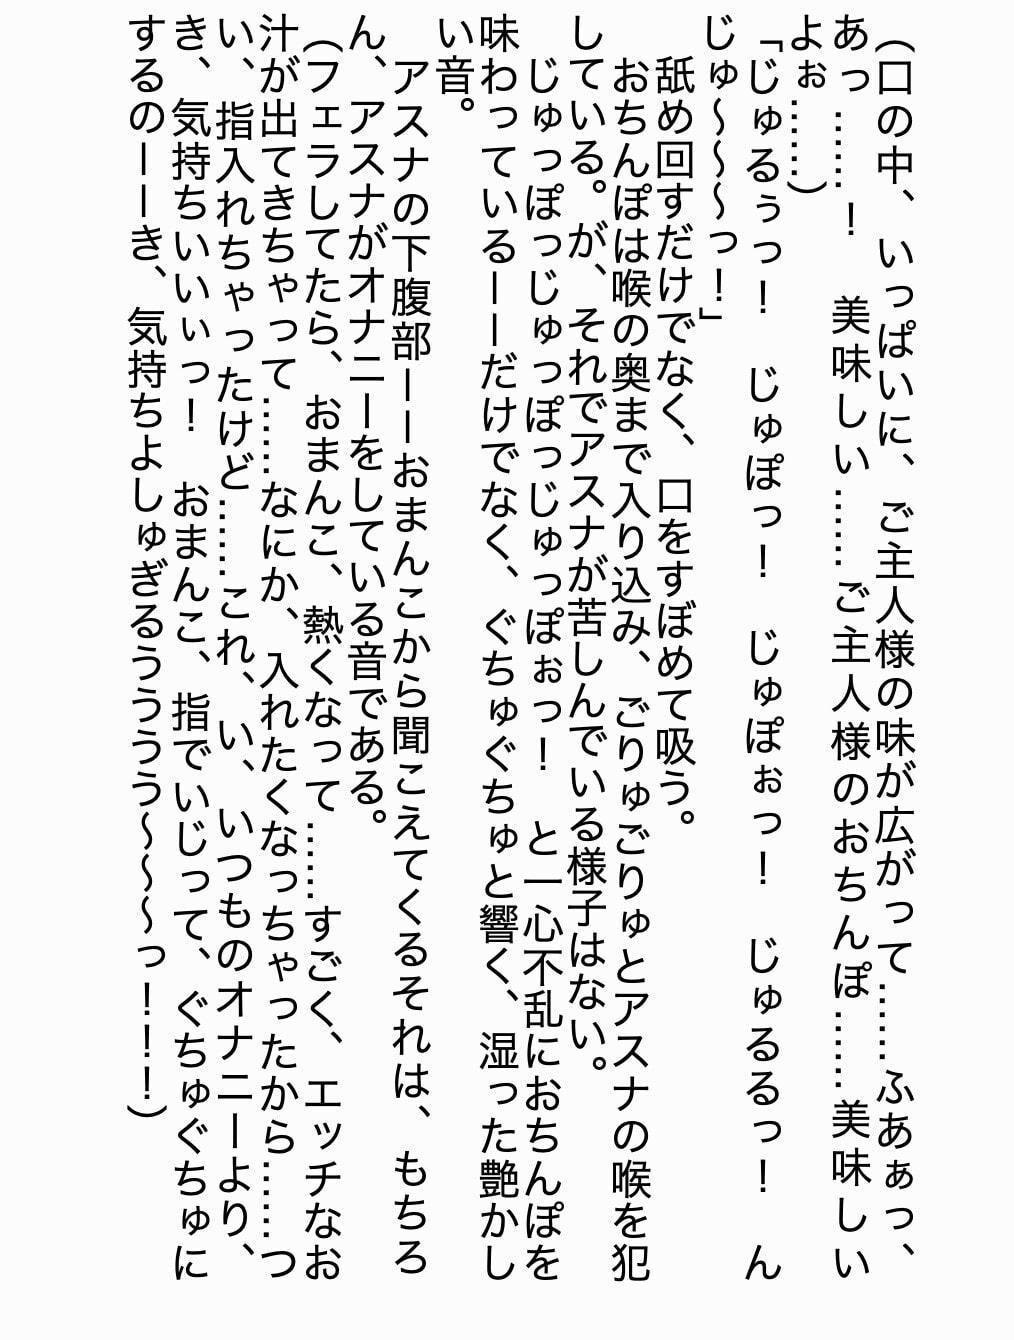 （口の中、いっぱいに、ご主人様の味が広がって……ふあぁっ、
あっ……！　美味しい……ご主人様のおちんぽ……美味しい
よぉ……）
「じゅるぅっ！　じゅぽっ！　じゅぽぉっ！　じゅるるっ！　ん
じゅ～～～っ！」
　舐め回すだけでなく、口をすぼめて吸う。
　おちんぽは喉の奥まで入り込み、ごりゅごりゅとアスナの喉を犯
している。が、それでアスナが苦しんでいる様子はない。
　じゅっぽっじゅっぽっじゅっぽぉっ！　と一心不乱におちんぽを
味わっているーーだけでなく、ぐちゅぐちゅと響く、湿った艶かし
い音。
　アスナの下腹部ーーおまんこから聞こえてくるそれは、もちろ
ん、アスナがオナニーをしている音である。
（フェラしてたら、おまんこ、熱くなって……すごく、エッチなお
汁が出てきちゃって……なにか、入れたくなっちゃったから……つ
い、指入れちゃったけど……これ、い、いつものオナニーより、
き、気持ちいいぃっ！　おまんこ、指でいじって、ぐちゅぐちゅに
するのーーき、気持ちよしゅぎるうううう～～～っ！！！）